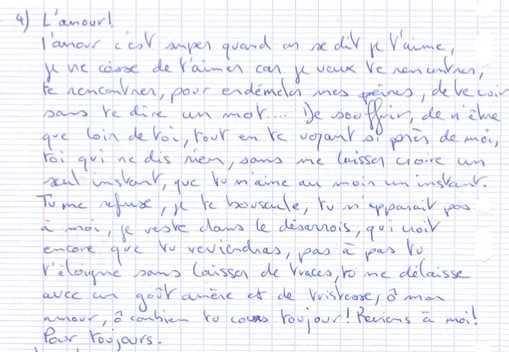 4) L'amour!
l'amour c'est super quand on se dit je t'aime,
je ne cesse de t'aimer car je veux te rencontrer,
te rencontrer, pour endémeler mes peines, de te voir
sans te dire un mot.... De souffrir, de n'être
que loin de toi, tout en te voyant si près de moi,
toi qui ne dis rien, sans me laisser croire un
seul instant, que tu m'aime au moin un instant.
Tu me refuse, je te bouscule, tu n'apparait pas
à moi, je reste dans le désarrois, qui croit
encore que tu reviendras, pas à pas tu
t'éloigne sans laisser de traces, tu me délaisse
avec un goût amère et de tristesse, ô mon
amour, ô combien tu cours toujour! Reviens à moi!
Pour toujours.